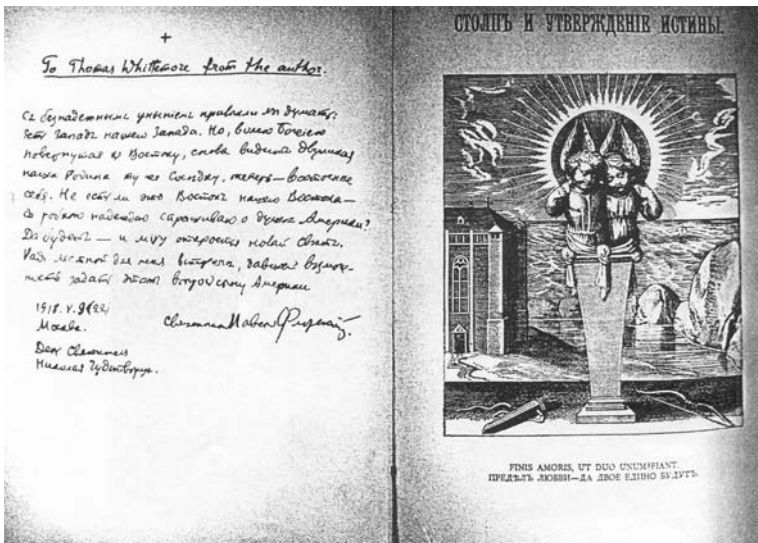 +
To Thomas Whittemore from the author.
Съ безнадежнымъ уныніемъ привыкли мы думать:
есть Западъ нашего Запада. Но, волею Божіею
повернутая къ Востоку, снова видитъ двуликая
наша Родина ту же Соседку, теперь — восточнее
себя. Не есть ли это Востокъ нашего Востока —
съ робкою надеждою спрашиваю о душе Америки?
Да будетъ — и міру откроется новый Светъ.
Радъ для меня встречи, давшей возмож-
ность задать этотъ вопросъ сыну Америки
1918. V. 9 (22)
Москва.
Священникъ Павелъ Флоренскій.
День Святителя
Николая Чудотворца.
СТОЛПЪ И УТВЕРЖДЕНІЕ ИСТИНЫ.
FINIS AMORIS, UT DUO UNUM FIANT.
ПРЕДѢЛЪ ЛЮБВИ—ДА ДВОЕ ЕДИНО БУДУТЪ.